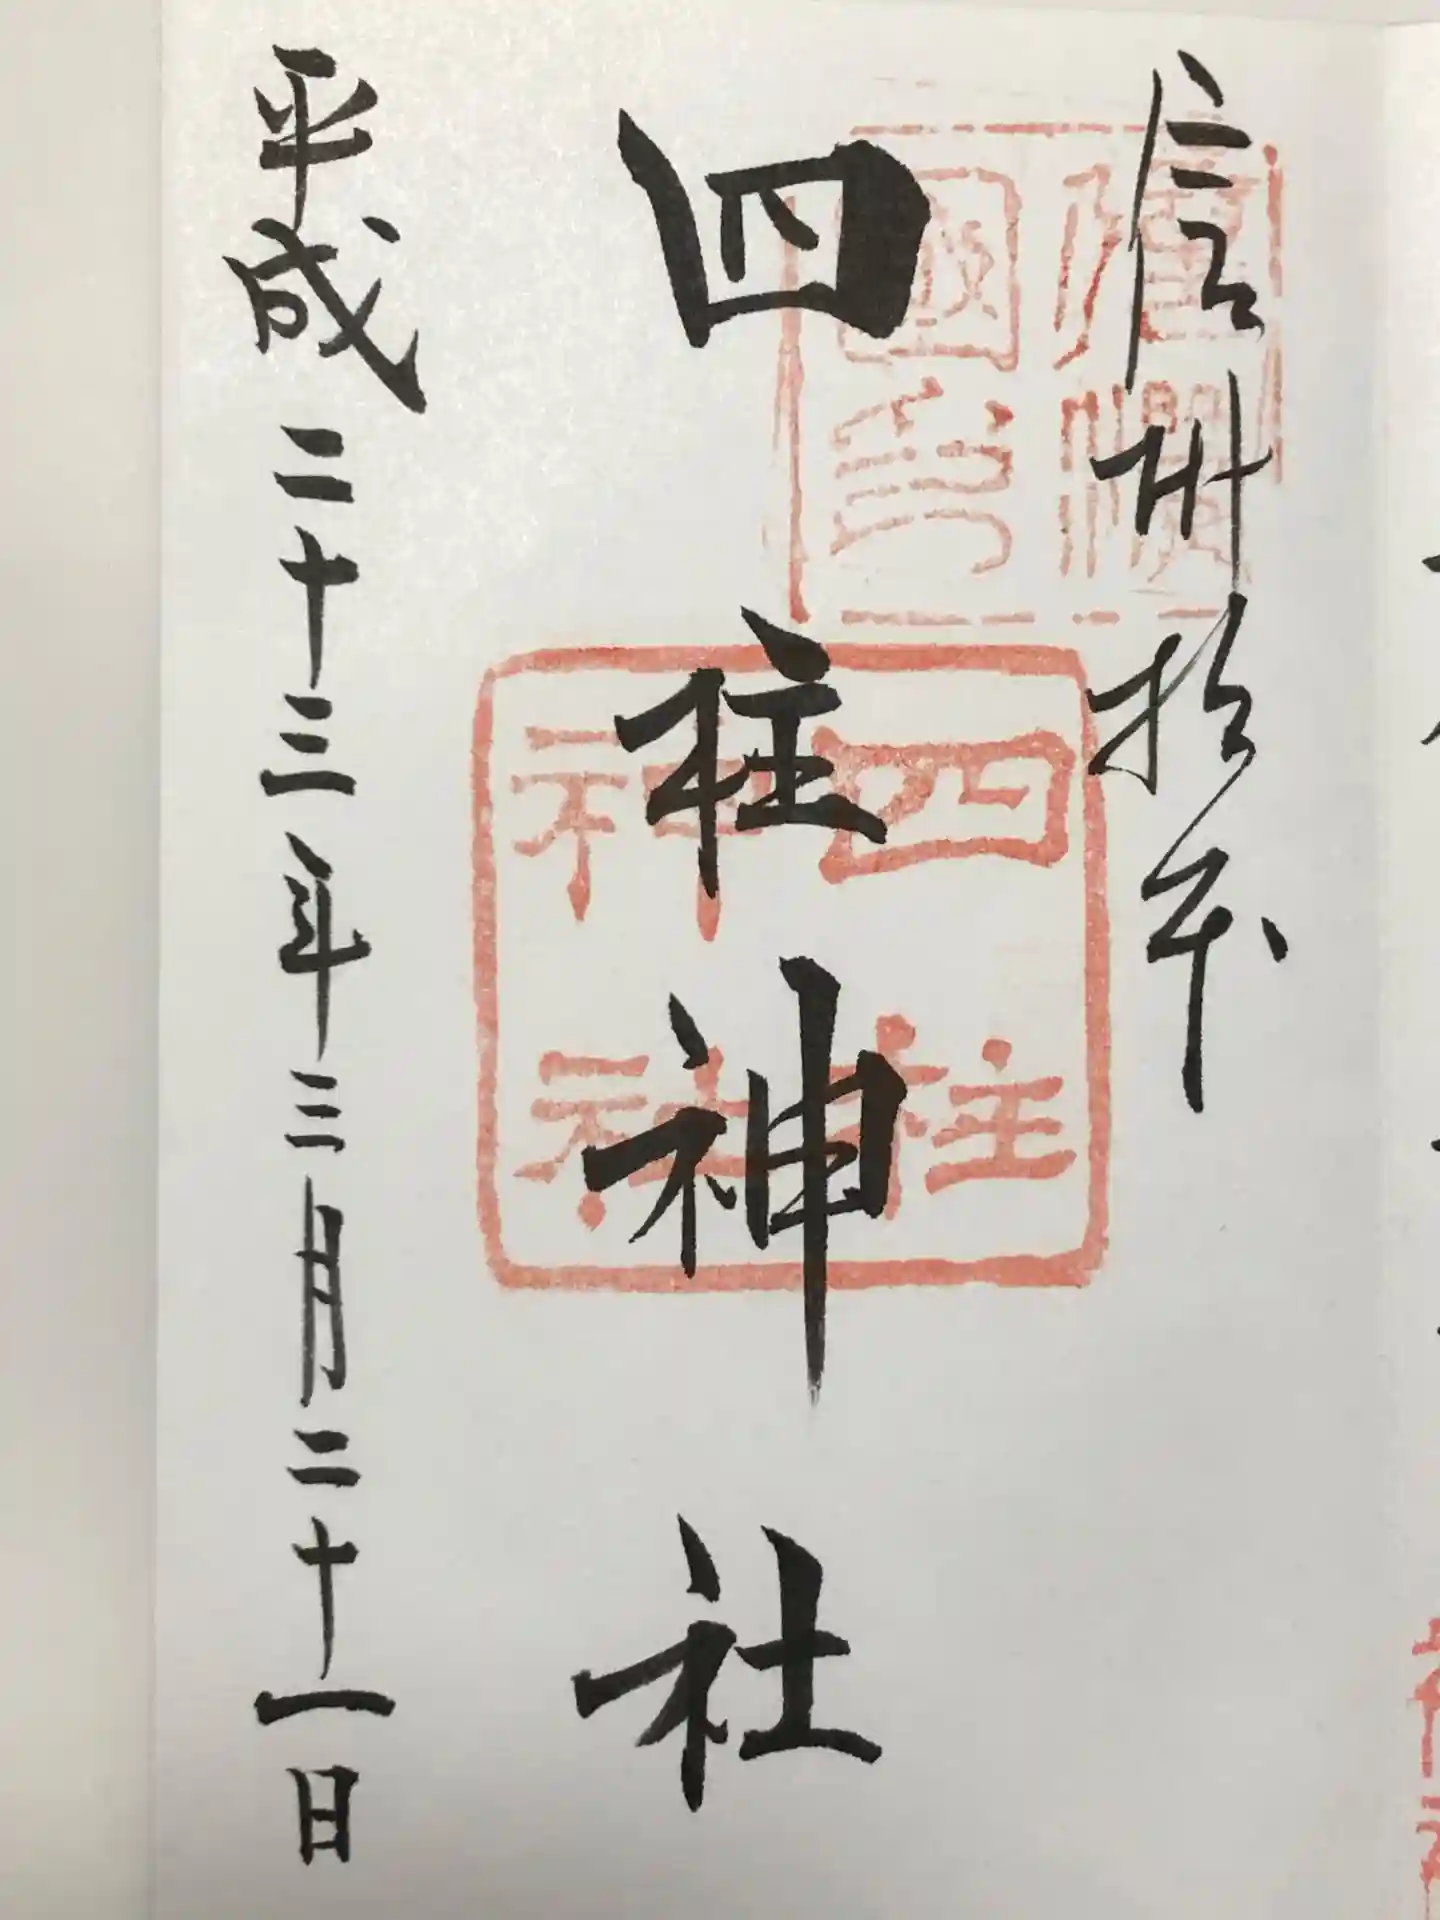 信州松本
四柱神社
平成二十三年三月二十一日
四柱
神社